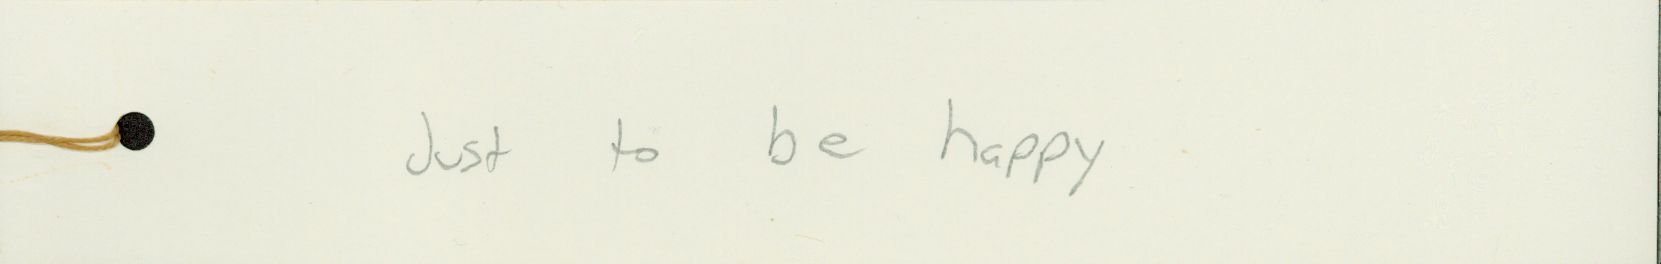 Just to be happy